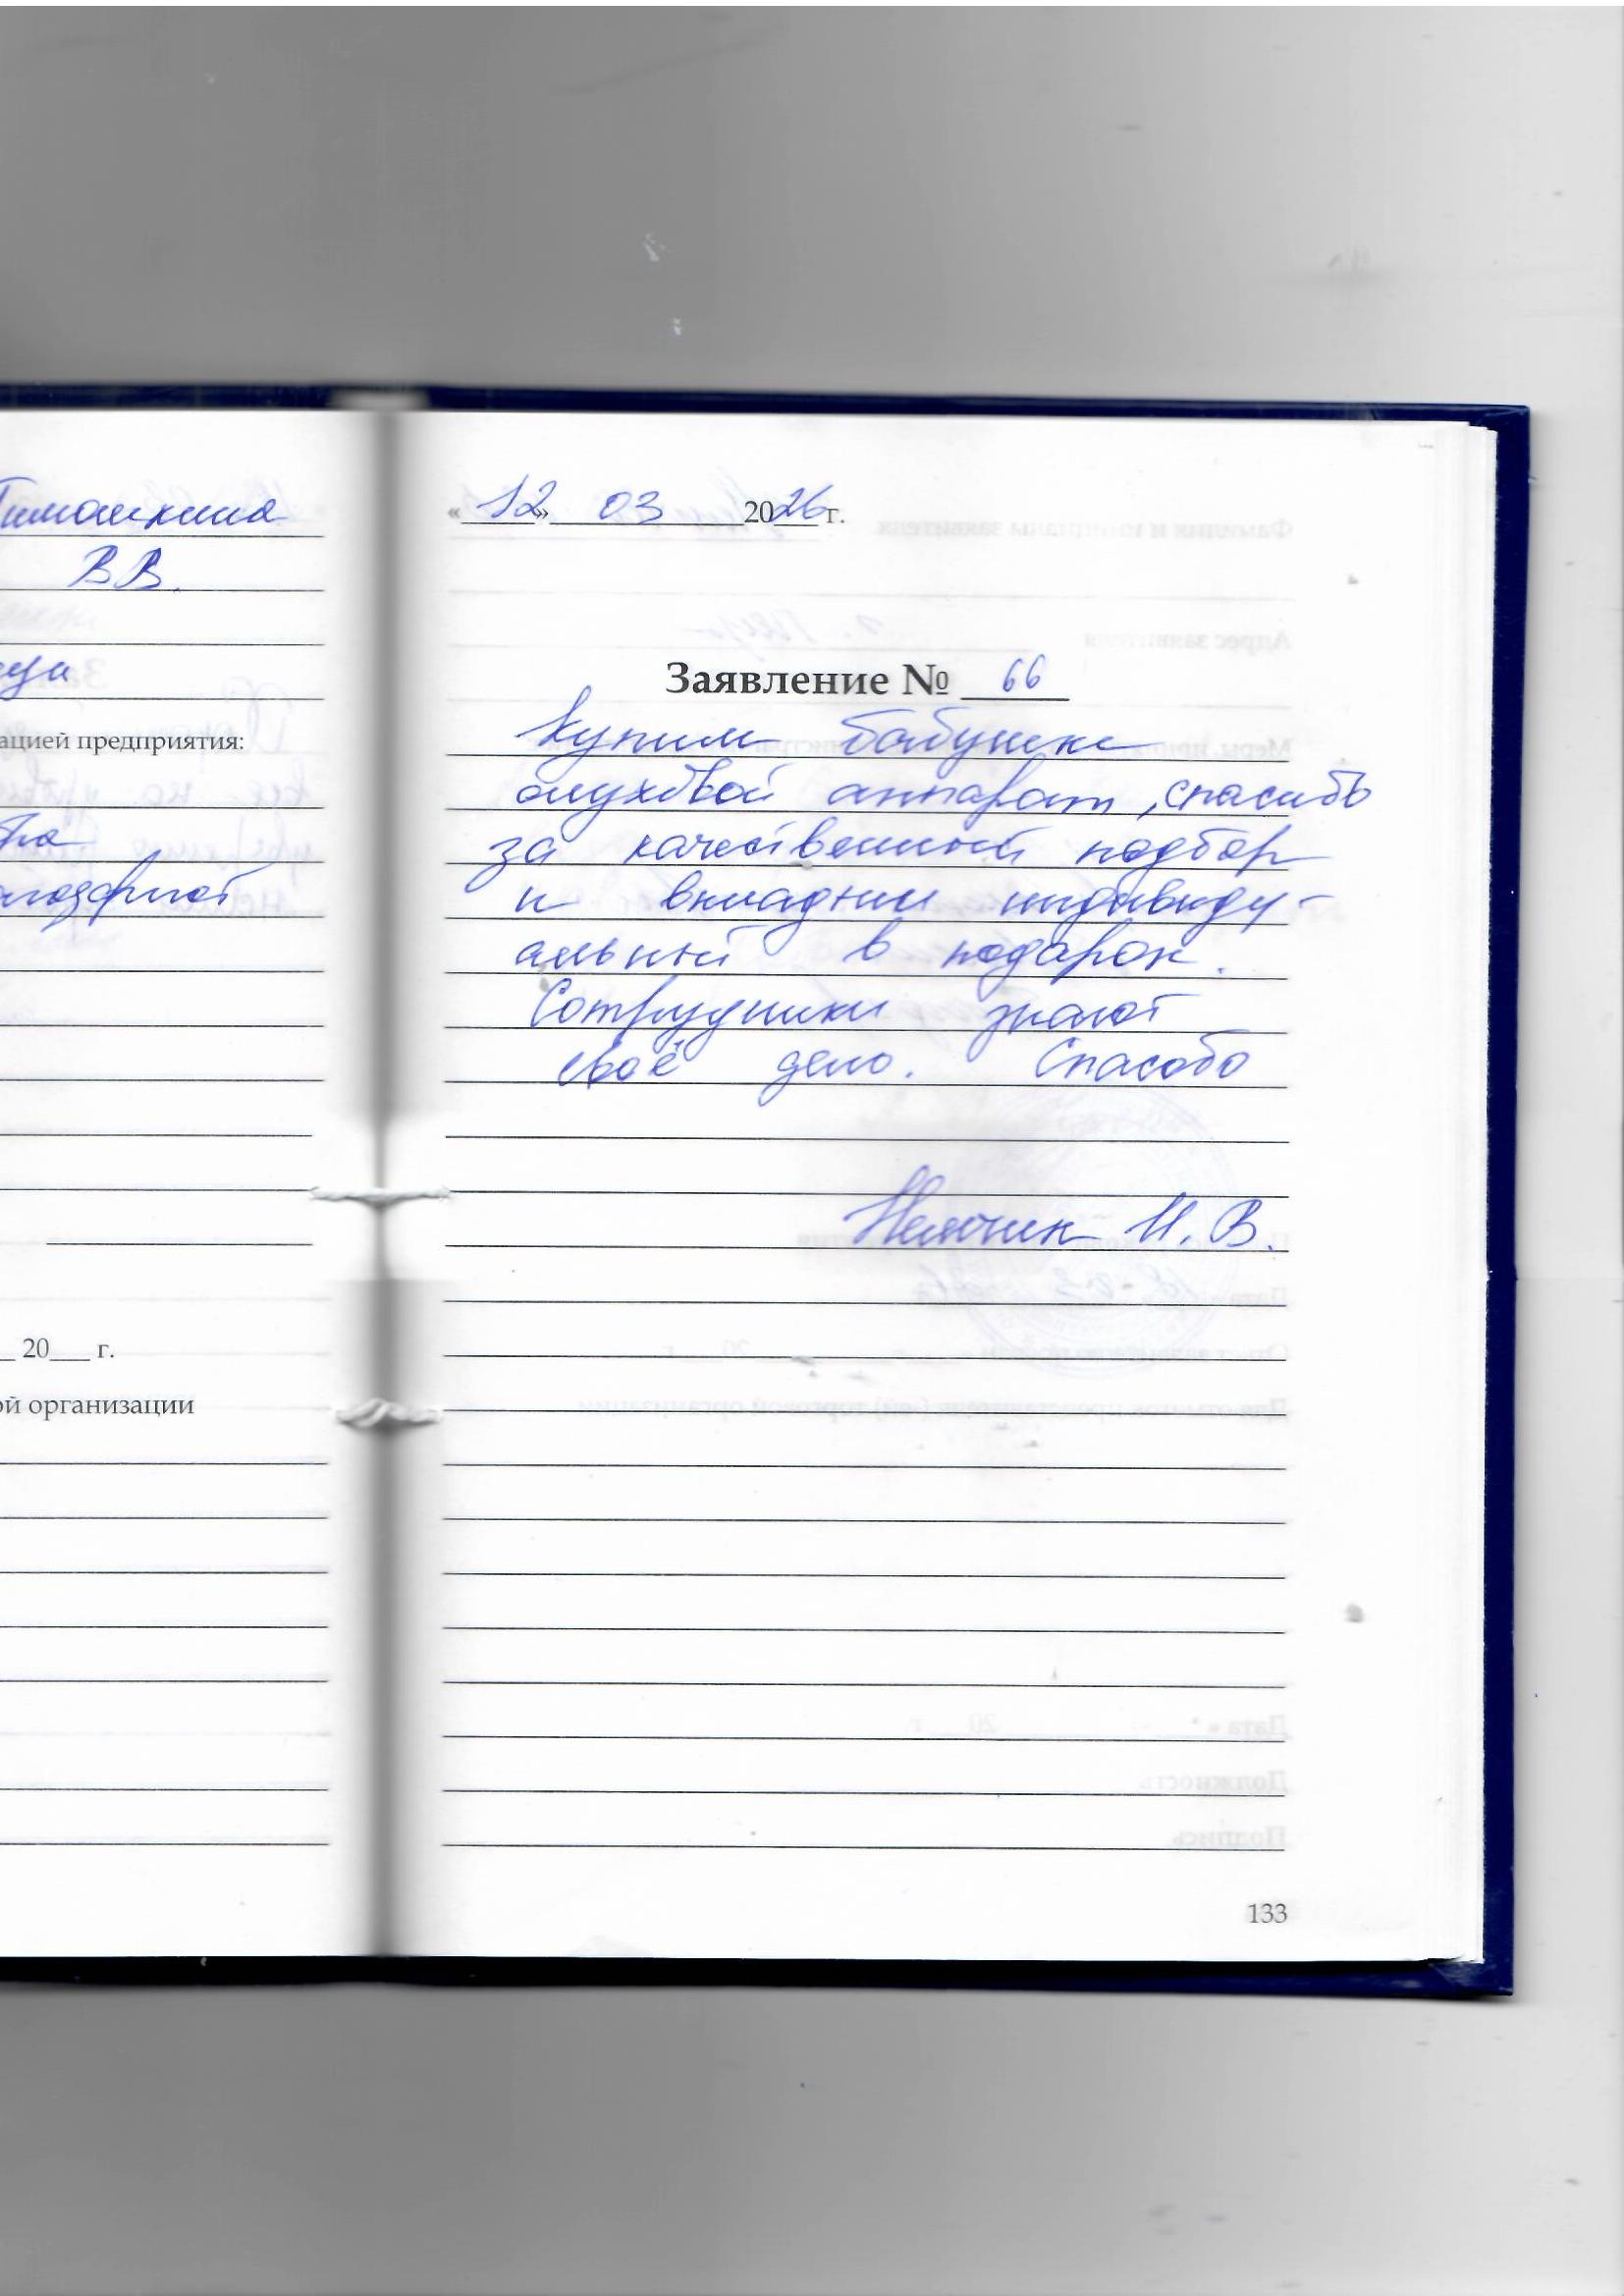 Тимошкина
В В.
ацией предприятия:
20___ г.
ой организации
«12» 03 2026 г.
Заявление № 66
Купили бабушке
слуховой аппарат, спасибо
за качественный подбор
и вкладыш индивиду-
альный в подарок.
Сотрудники знают
своё дело. Спасибо
Н. В.
133